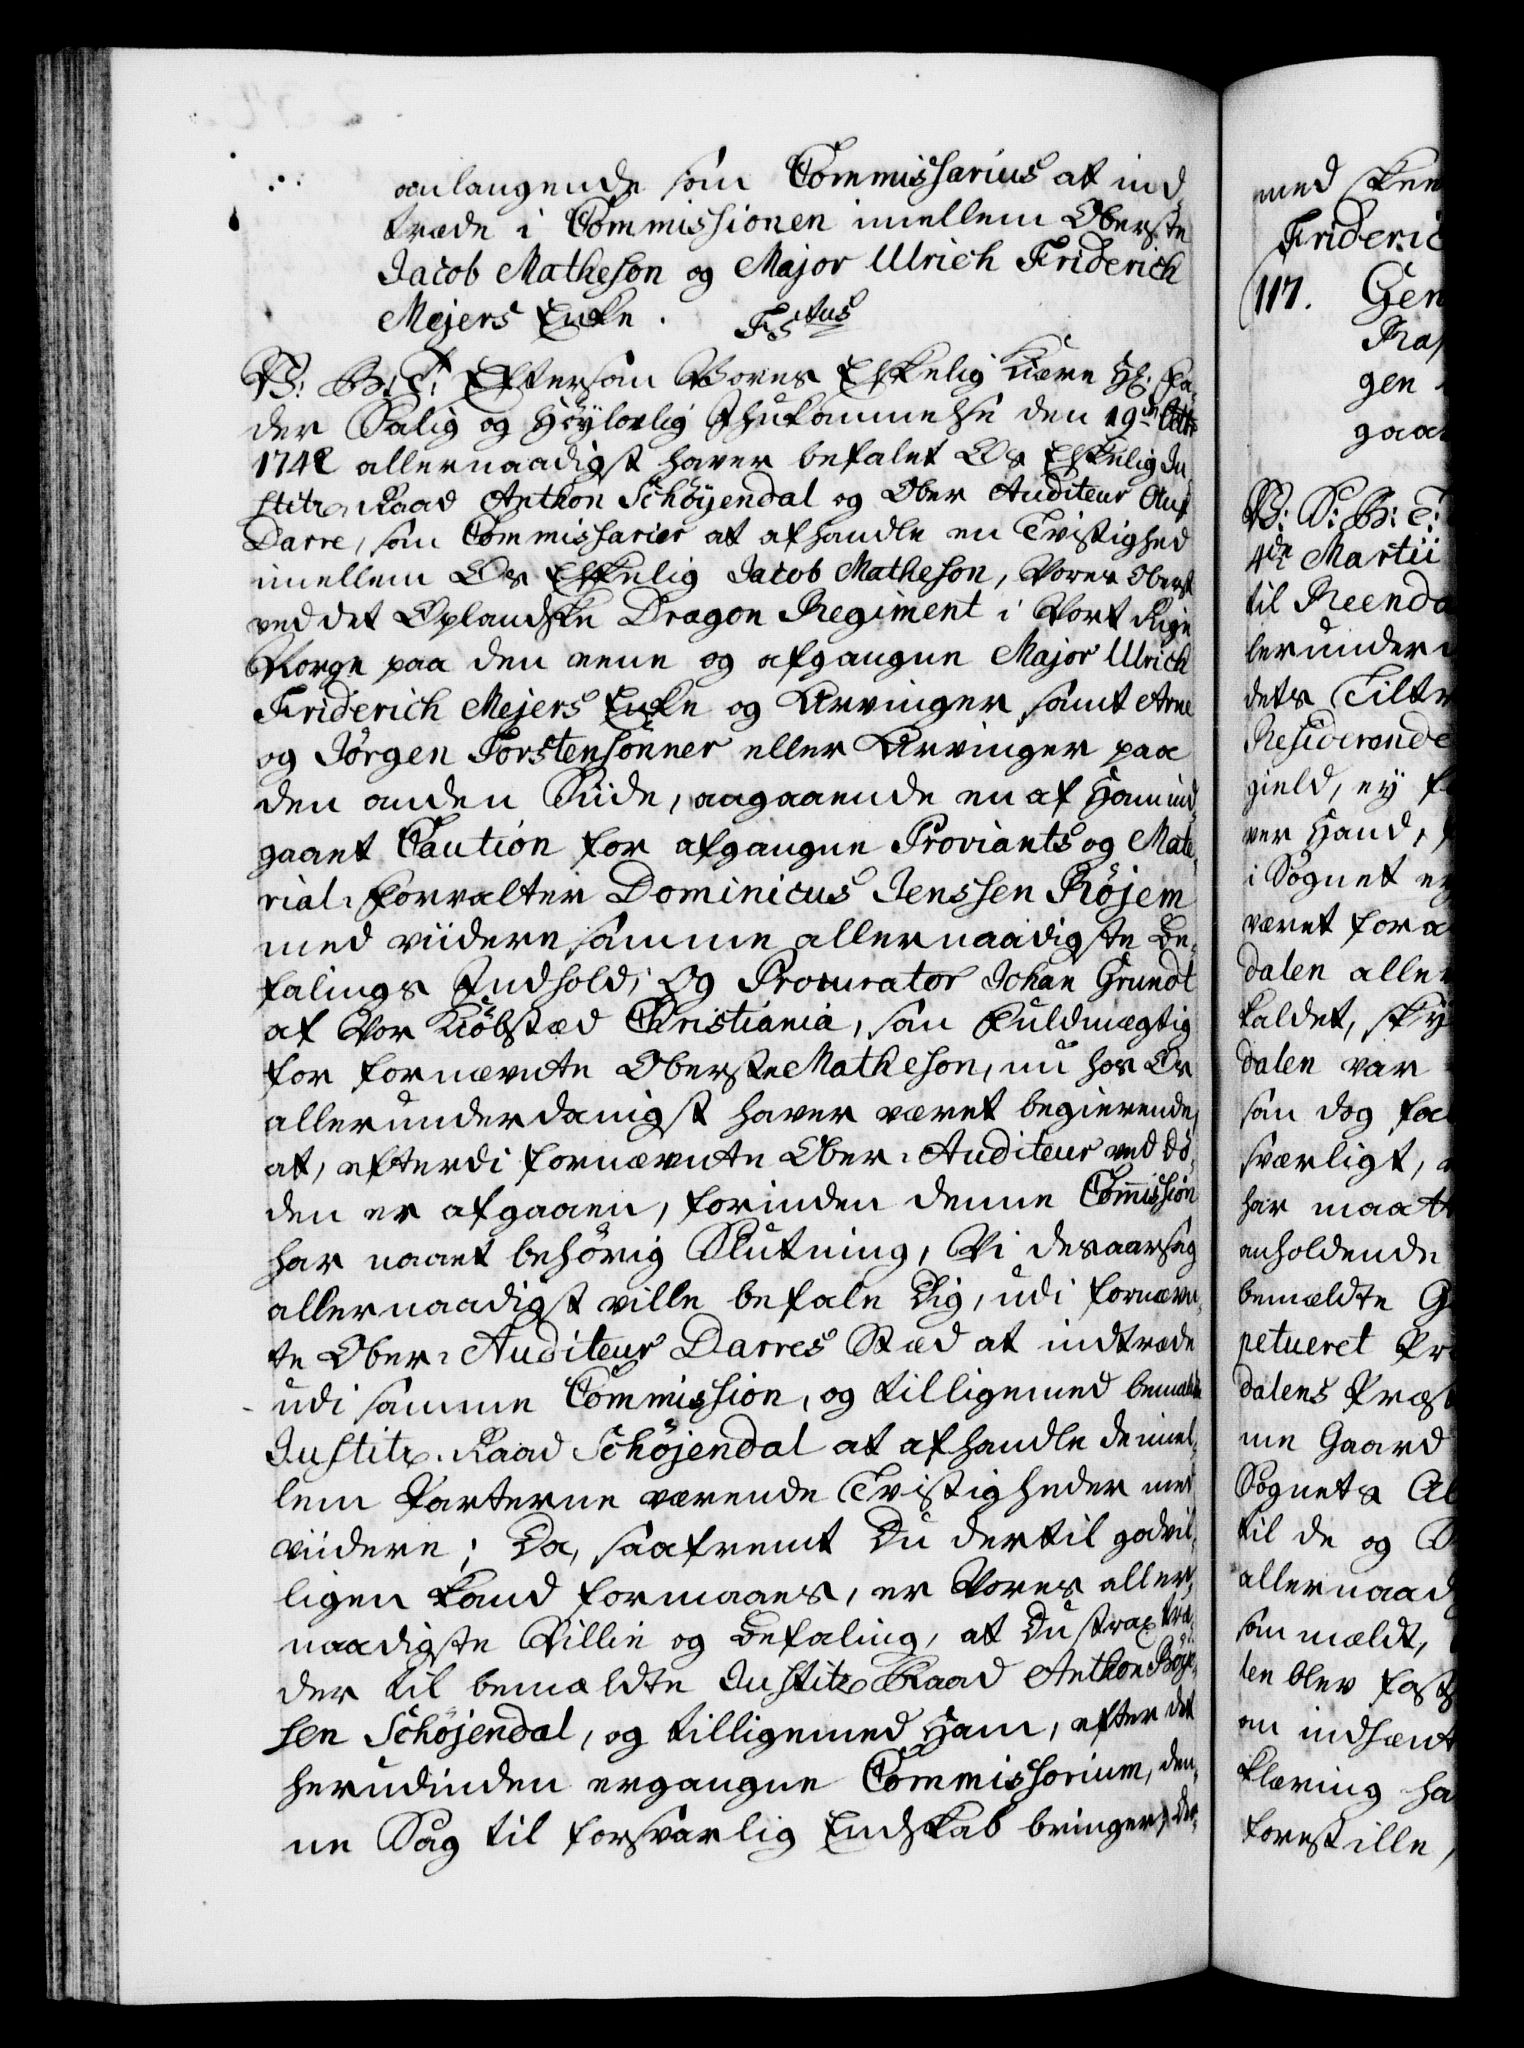 anlangende som Commissarius at ind-
træde i Commissionen imellem Oberste
Jacob Matheson og Major Ulrich Friderich
Mejers Enke. Fstus
V: G: T: Eftersom Vores Elskelig Kiære Hr: Fa-
der Salig og Høylovlig Ihukommelse den 19de Octr
1742 allernaadigst haver befalet Os Elskelig Ju-
stitz-Raad Anthon Schöyendal og Ober Auditeur Oluf
Darre, som Commissarier at afhandle en Tvistighed
imellem Os Elskelig Jacob Matheson, Vores Oberst
ved det Oplandske Dragon Regiment i Vort Rige
Norge paa den eene og afgangne Major Ulrich
Friderich Mejers Enke og Arvinger samt Arne
og Jörgen Torstensönner eller Arvinger paa
den anden Siide, angaaende en af Ham ind-
gaaet Caution for afgangne Proviants og Mate-
rial-Forvalter Dominicus Jenssen Röjem
med viidere samme allernaadigste Be-
falings Indhold; Og Procurator Johan Grundt
af Vor Kiöbstæd Christiania, som Fuldmægtig
for fornævnte Oberste Matheson, nu hos Os
allerunderdanigst haver været begierende,
at, efterdi fornævnte Ober-Auditeur ved Dö-
den er afgaaen, forinden denne Commission
har naaet behörig Slutning, Vi desaarsag
allernaadigst ville befale Dig, udi fornævn-
te Ober-Auditeur Darres Stæd at indtræde
udi samme Commission, og tilligemed bemeldte
Justitz-Raad Schöjendal at afhandle de imel-
lem Parterne værende Tvistigheder med
viidere; Da, saafremt Du dertil godvil-
ligen kand formaaes, er Vores aller-
naadigste Villie og Befaling, at Du strax træ-
der til bemældte Justitz Raad Anthon Böje-
sen Schöjendal, og tilligemed Ham, efter det
herudinden ergangne Commissorium, den-
ne Sag til forsvarlig Endskab bringer, De-
med
Frideric
117. Gen
gen
gaa
V: S: G: T:
4de Martii
til Reenda
lerunder
dets Tiltr
Resideronde
gield, ey
ver Haand,
i Sognet
været for
dalen aller
kaldet,
dalen var
som dog
sværligt,
har maat
anholdende
bemældte
petueret
dalens Præst
me Gaard
Sognets
til de og
allernaad
som mældt,
len blev fast
en indsænt
klæring ha
forestille,